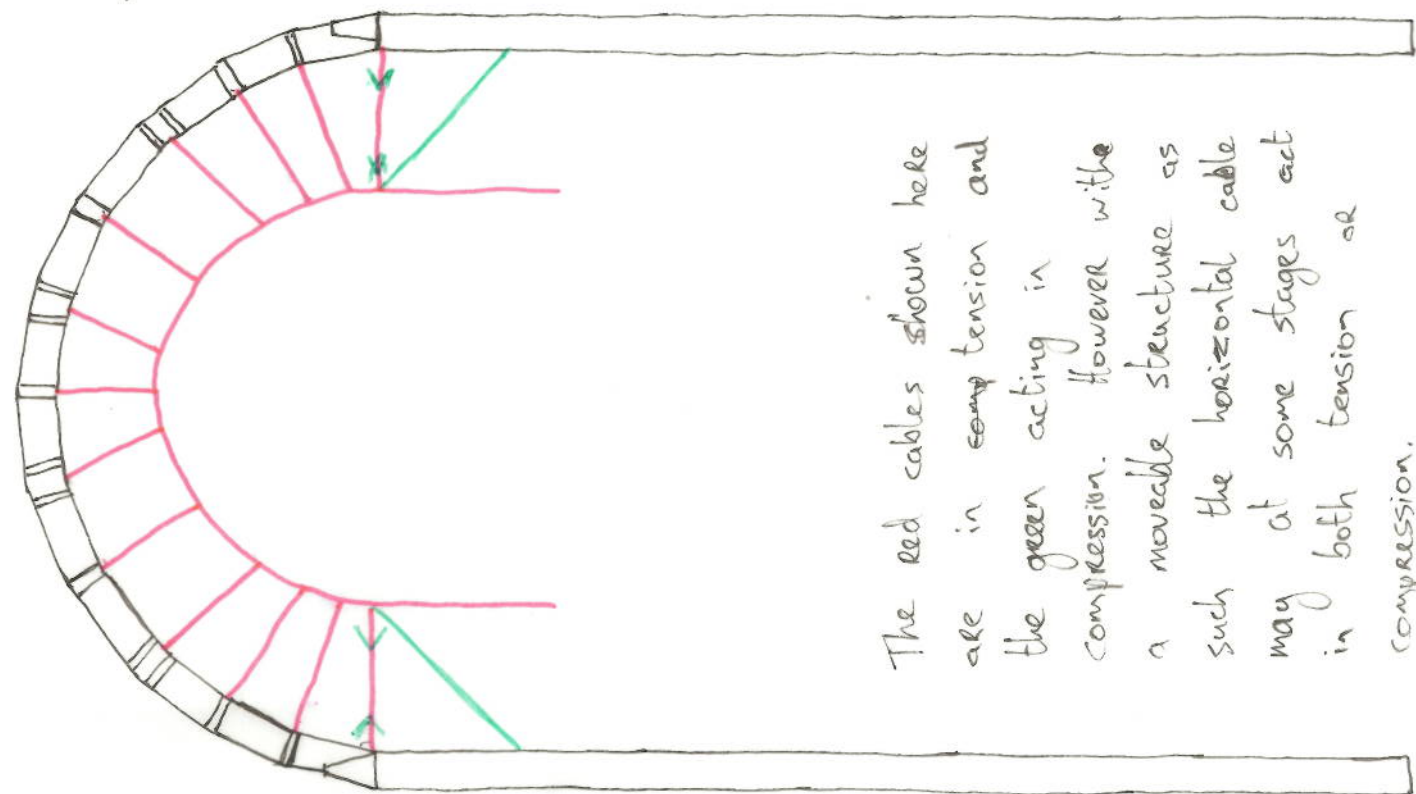 The red cables shown here
are in comp tension and
the green acting in
compression. However with
a moveable structure as
such the horizontal cable
may at some stages act
in both tension or
compression.